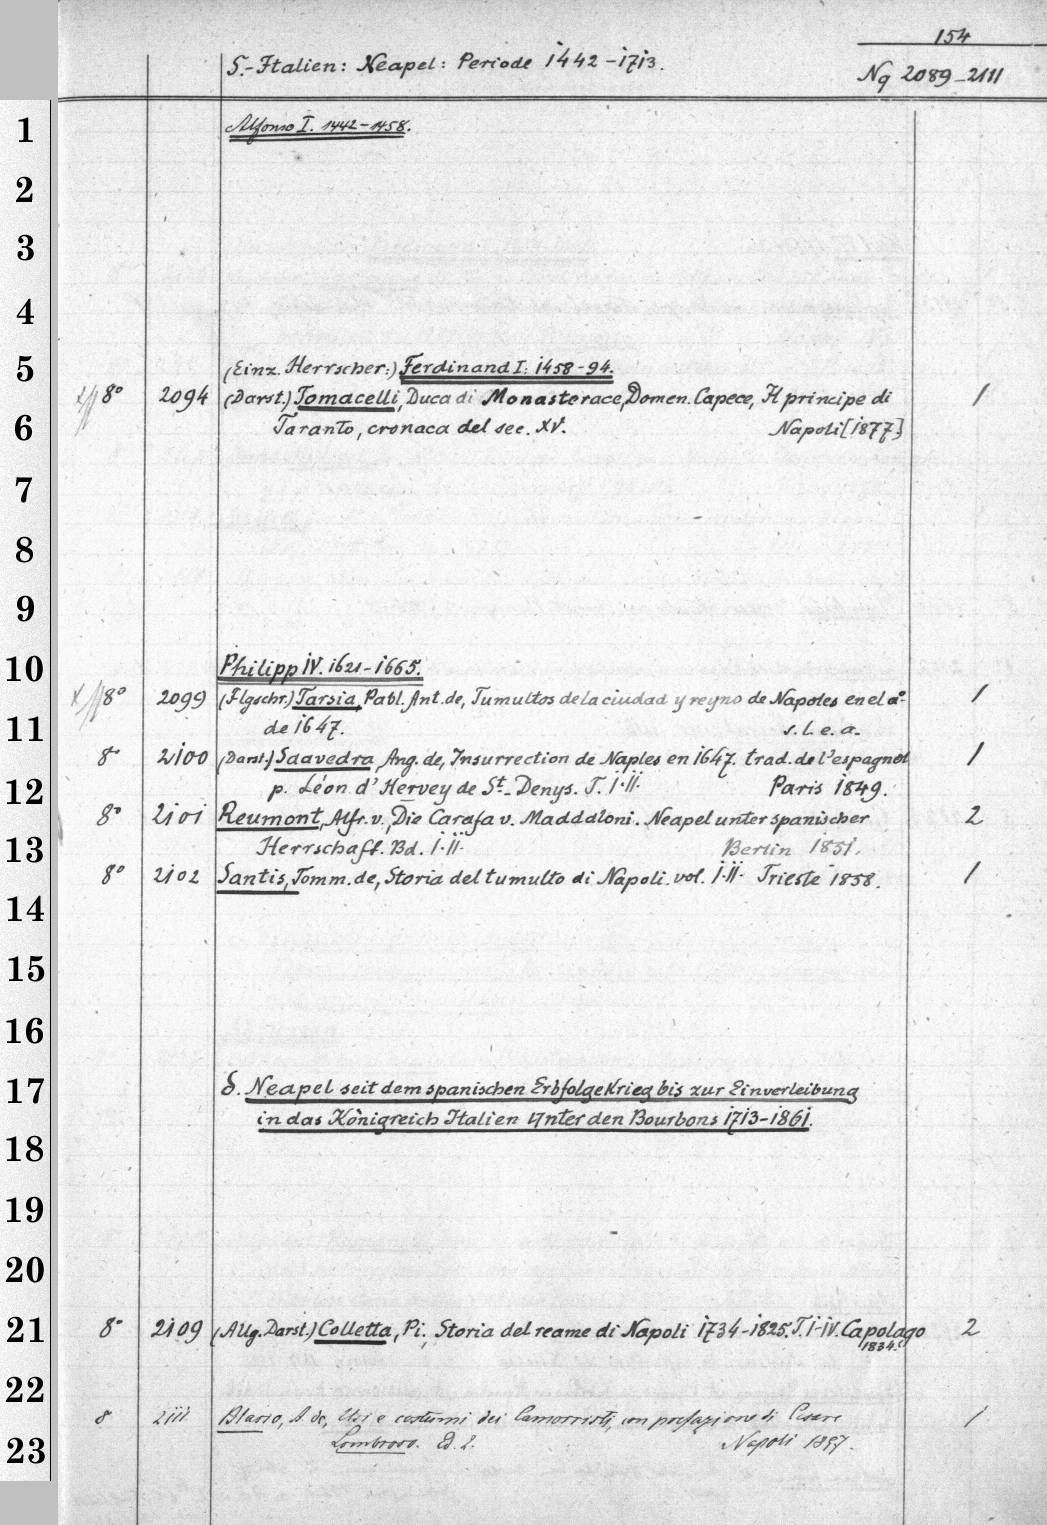 154
S.-Italien: Neapel: Periode 1442-1713.
Nq 2089-2111
1 Alfonso I. 1442-1458.
2
3
4
5 (Einz. Herrscher:) Ferdinand I: 1458-94.
8° 2094 (Darst.) Tomacelli, Duca di Monasterace, Domen. Capece, Il principe di 1
6 Taranto, cronaca del sec. XV. Napoli [1877]
7
8
9
10 Philipp IV. 1621-1665.
8° 2099 (Flgschr.) Tarsia, Pabl. Ant. de, Tumultos de la ciudad y reyno de Napoles en el a° 1
11 de 1647. s. l. e. a.
8° 2100 (Darst.) Saavedra, Ang. de, Insurrection de Naples en 1647. trad. de l'espagnol 1
12 p. Léon d'Hervey de St.-Denys. T. I.II. Paris 1849.
8° 2101 Reumont, Alfr. v., Die Carafa v. Maddaloni. Neapel unter spanischer 2
13 Herrschaft. Bd. I.II. Berlin 1851.
8° 2102 Santis, Tomm. de, Storia del tumulto di Napoli. vol. I.II. Trieste 1858. 1
14
15
16
17 δ. Neapel seit dem spanischen Erbfolgekrieg bis zur Einverleibung
in das Königreich Italien Unter den Bourbons 1713-1861.
18
19
20
21 8° 2109 (Allg. Darst.) Colletta, Pi., Storia del reame di Napoli 1734-1825. T. I-IV. Capolago 2
1834.
22
8 2111 Blasio, A. de, Usi e costumi dei Camorristi, con prefazione di Cesare 1
23 Lombroso. Ed. 2. Napoli 1897.